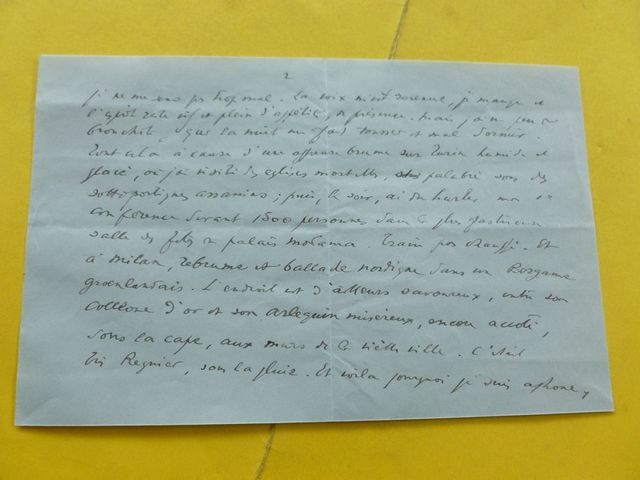 2
je ne me sens pas trop mal. La voix m'est revenue, je mange et
plein d'appétit, en présence. Mais j'ai un peu de
bronchite, que la nuit me fait tousser et mal dormir
tout cela à cause d'une affreuse brume sur Turin humide et
glacé, où j'ai visité des églises mortelles, palabré sous des
sottoportiques assassins ; puis, le soir, ai dû hurler ma 1re
conférence devant 1500 personnes dans la plus fastueuse
salle des fêtes du palais madama. Train pas chauffé. Et
à Milan, rebrume et ballade nordique dans un Bergame
groenlandais. L'endroit est d'ailleurs savoureux, entre son
Colleone d'or et son arlequin miséreux, encore accoté,
sous la cape, aux murs de la vieille ville. C'était
très Regnier, sous la pluie. Et voilà pourquoi je suis aphone,